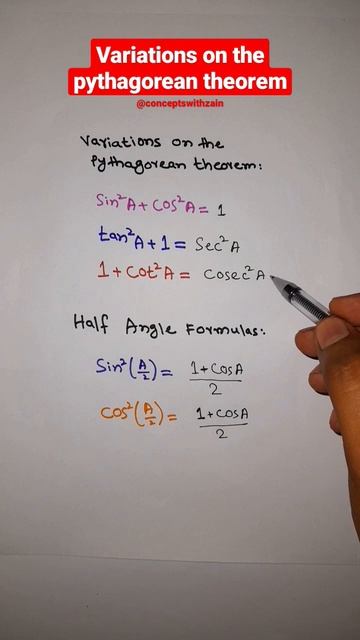 Variations on the
pythagorean theorem
@conceptswithzain
Variations on the
Pythagorean theorem:
Sin²A + Cos²A = 1
tan²A + 1 = Sec²A
1 + Cot²A = Cosec²A
Half Angle Formulas:
Sin²(A/2) = 1 + CosA / 2
Cos²(A/2) = 1 + CosA / 2